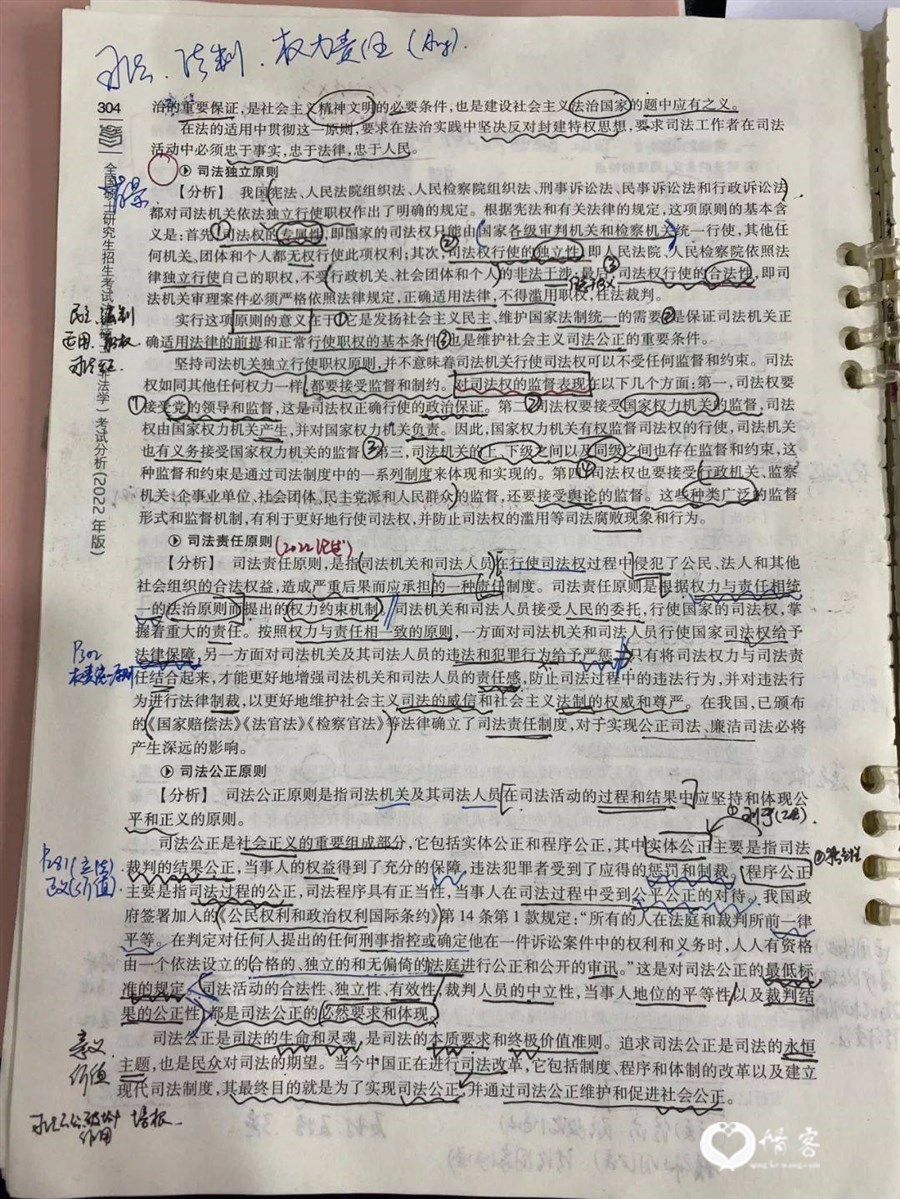 司法、法制、权力责任
304
治的重要保证，是社会主义精神文明的必要条件，也是建设社会主义法治国家的题中应有之义。
在法的适用中贯彻这一原则，要求在法治实践中坚决反对封建特权思想，要求司法工作者在司法
活动中必须忠于事实，忠于法律，忠于人民。
司法独立原则
【分析】 我国宪法、人民法院组织法、人民检察院组织法、刑事诉讼法、民事诉讼法和行政诉讼法
都对司法机关依法独立行使职权作出了明确的规定。根据宪法和有关法律的规定，这项原则的基本含
义是：首先，司法权的专属性，即国家的司法权只能由国家各级审判机关和检察机关统一行使，其他任
何机关、团体和个人都无权行使此项权利；其次，司法权行使的独立性，即人民法院、人民检察院依照法
律独立行使自己的职权，不受行政机关、社会团体和个人的非法干涉；最后，司法权行使的合法性，即司
法机关审理案件必须严格依照法律规定，正确适用法律，不得滥用职权，枉法裁判。
实行这项原则的意义在于：①它是发扬社会主义民主、维护国家法制统一的需要；②是保证司法机关正
确适用法律的前提和正常行使职权的基本条件；③也是维护社会主义司法公正的重要条件。
坚持司法机关独立行使职权原则，并不意味着司法机关行使司法权可以不受任何监督和约束。司法
权如同其他任何权力一样，都要接受监督和制约。对司法权的监督表现在以下几个方面：第一，司法权要
接受党的领导和监督，这是司法权正确行使的政治保证。第二，司法权要接受国家权力机关的监督，司法
权由国家权力机关产生，并对国家权力机关负责。因此，国家权力机关有权监督司法权的行使，司法机关
也有义务接受国家权力机关的监督。第三，司法机关的上、下级之间以及同级之间也存在监督和约束，这
种监督和约束是通过司法制度中的一系列制度来体现和实现的。第四，司法权也要接受行政机关、监察
机关、企事业单位、社会团体、民主党派和人民群众的监督，还要接受舆论的监督。这些种类广泛的监督
形式和监督机制，有利于更好地行使司法权，并防止司法权的滥用等司法腐败现象和行为。
司法责任原则
【分析】 司法责任原则，是指司法机关和司法人员在行使司法权过程中侵犯了公民、法人和其他
社会组织的合法权益，造成严重后果而应承担的一种责任制度。司法责任原则是根据权力与责任相统
一的法治原则而提出的权力约束机制。司法机关和司法人员接受人民的委托，行使国家的司法权，掌
握着重大的责任。按照权力与责任相一致的原则，一方面对司法机关和司法人员行使国家司法权给予
法律保障，另一方面对司法机关及其司法人员的违法和犯罪行为给予严惩。只有将司法权力与司法责
任结合起来，才能更好地增强司法机关和司法人员的责任感，防止司法过程中的违法行为，并对违法行
为进行法律制裁，以更好地维护社会主义司法的威信和社会主义法制的权威和尊严。在我国，已颁布
的《国家赔偿法》《法官法》《检察官法》等法律确立了司法责任制度，对于实现公正司法、廉洁司法必将
产生深远的影响。
司法公正原则
【分析】 司法公正原则是指司法机关及其司法人员在司法活动的过程和结果中应坚持和体现公
平和正义的原则。
司法公正是社会正义的重要组成部分，它包括实体公正和程序公正，其中实体公正主要是指司法
裁判的结果公正，当事人的权益得到了充分的保障，违法犯罪者受到了应得的惩罚和制裁。程序公正
主要是指司法过程的公正，司法程序具有正当性，当事人在司法过程中受到公平公正的对待。我国政
府签署加入的《公民权利和政治权利国际条约》第14条第1款规定：“所有的人在法庭和裁判所前一律
平等。在判定对任何人提出的任何刑事指控或确定他在一件诉讼案件中的权利和义务时，人人有资格
由一个依法设立的合格的、独立的和无偏倚的法庭进行公正和公开的审讯。”这是对司法公正的最低标
准的规定。司法活动的合法性、独立性、有效性，裁判人员的中立性，当事人地位的平等性以及裁判结
果的公正性，都是司法公正的必然要求和体现。
司法公正是司法的生命和灵魂，是司法的本质要求和终极价值准则。追求司法公正是司法的永恒
主题，也是民众对司法的期望。当今中国正在进行司法改革，它包括制度、程序和体制的改革以及建立
现代司法制度，其最终目的就是为了实现司法公正，并通过司法公正维护和促进社会公正。
意义
价值